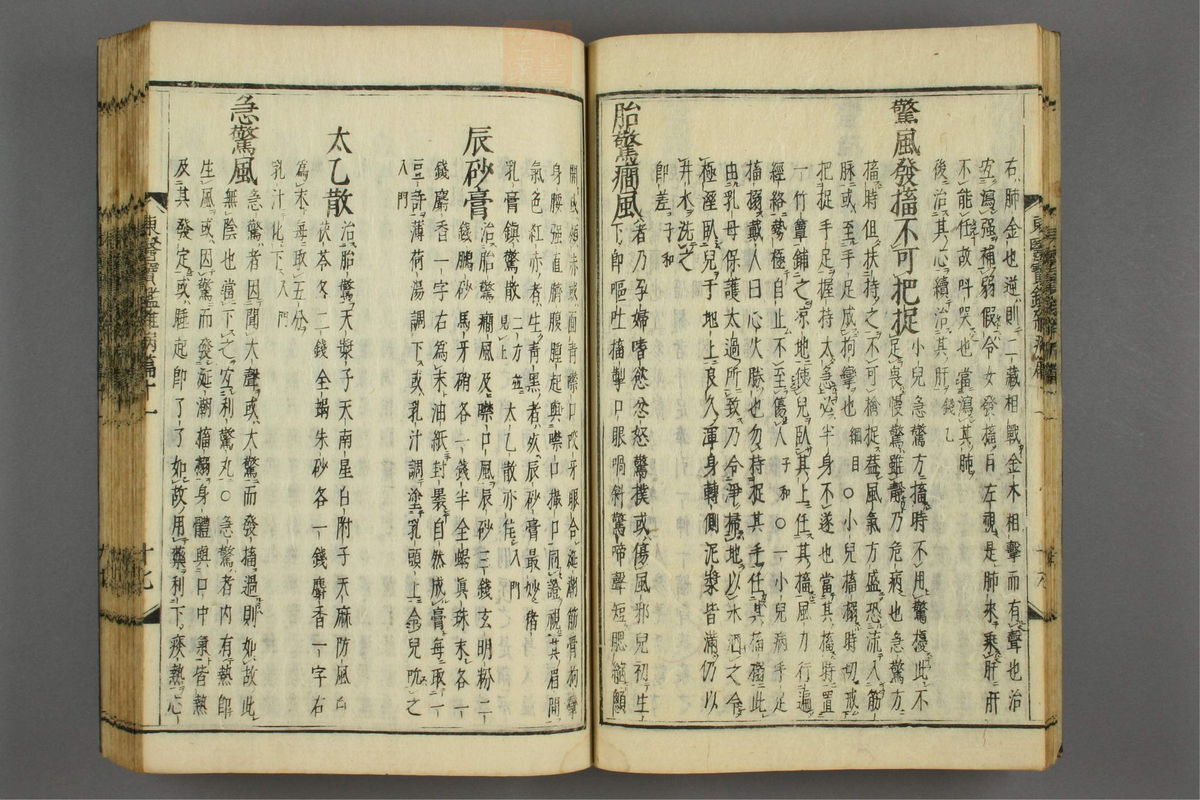 右肺金也逆則二藏相戰金木相擊而有聲也治
宜瀉强補弱假令女發搐目左視是肺來乘肝肝
不能任故叫哭也當瀉其肺
後治其心續治其肝錢乙
驚風發搐不可把捉小兒急驚方搐時不用驚擾此不
足畏慢驚雖靜乃危病也急驚方
搐時但扶持之不可擒捉盖風氣方盛恐流入筋
脉或至手足成拘攣也綱目○小兒搐搦時切戒
把捉手足握持太急必半身不遂也當其搐時置
一竹簟鋪之凉地使兒臥其上任其搐風力行遍
經絡勢極自止不至傷人子和○一小兒病手足
搐搦戴人曰心火勝也勿持捉其手任其搐搦此
由乳母保護太過所致乃令淨掃地以水洒之令
極溼臥兒于地上良久渾身轉側泥漿皆滿仍以
井水洗之
卽差子和
胎驚癎風者乃孕婦嗜慾忿怒驚撲或傷風邪兒初生
下卽嘔吐搐掣口眼喎斜驚啼聲短腮縮顖
開或頰赤或面靑噤口咬牙眼合涎潮筋骨拘攣
身腰强直臍腹腫起與噤口撮口同證視其眉間
氣色紅亦者生靑黑者死辰砂膏最妙猪
乳膏鎭驚散二方並見上太乙散亦佳入門
辰砂膏治胎驚癎風及噤口風辰砂三錢玄明粉二
錢鵬砂馬牙硝各一錢半全蝎眞珠末各一
錢麝香一字右爲末油紙封裹自然成膏每取一
豆許薄荷湯調下或乳汁調塗乳頭上令兒吮之
入門
太乙散治胎驚天漿子天南星白附子天麻防風白
茯苓各二錢全蝎朱砂各一錢麝香一字右
爲末每取五分
乳汁化下入門
急驚風急驚者因聞大聲或大驚而發搐過則如故此
無陰也當下之宜利驚丸○急驚者內有熱卽
生風或因驚而發涎潮搐搦身體與口中氣皆熱
及其發定或睡起卽了了如故用藥利下痰熱心
東醫寶鑑雜病篇十一
十七